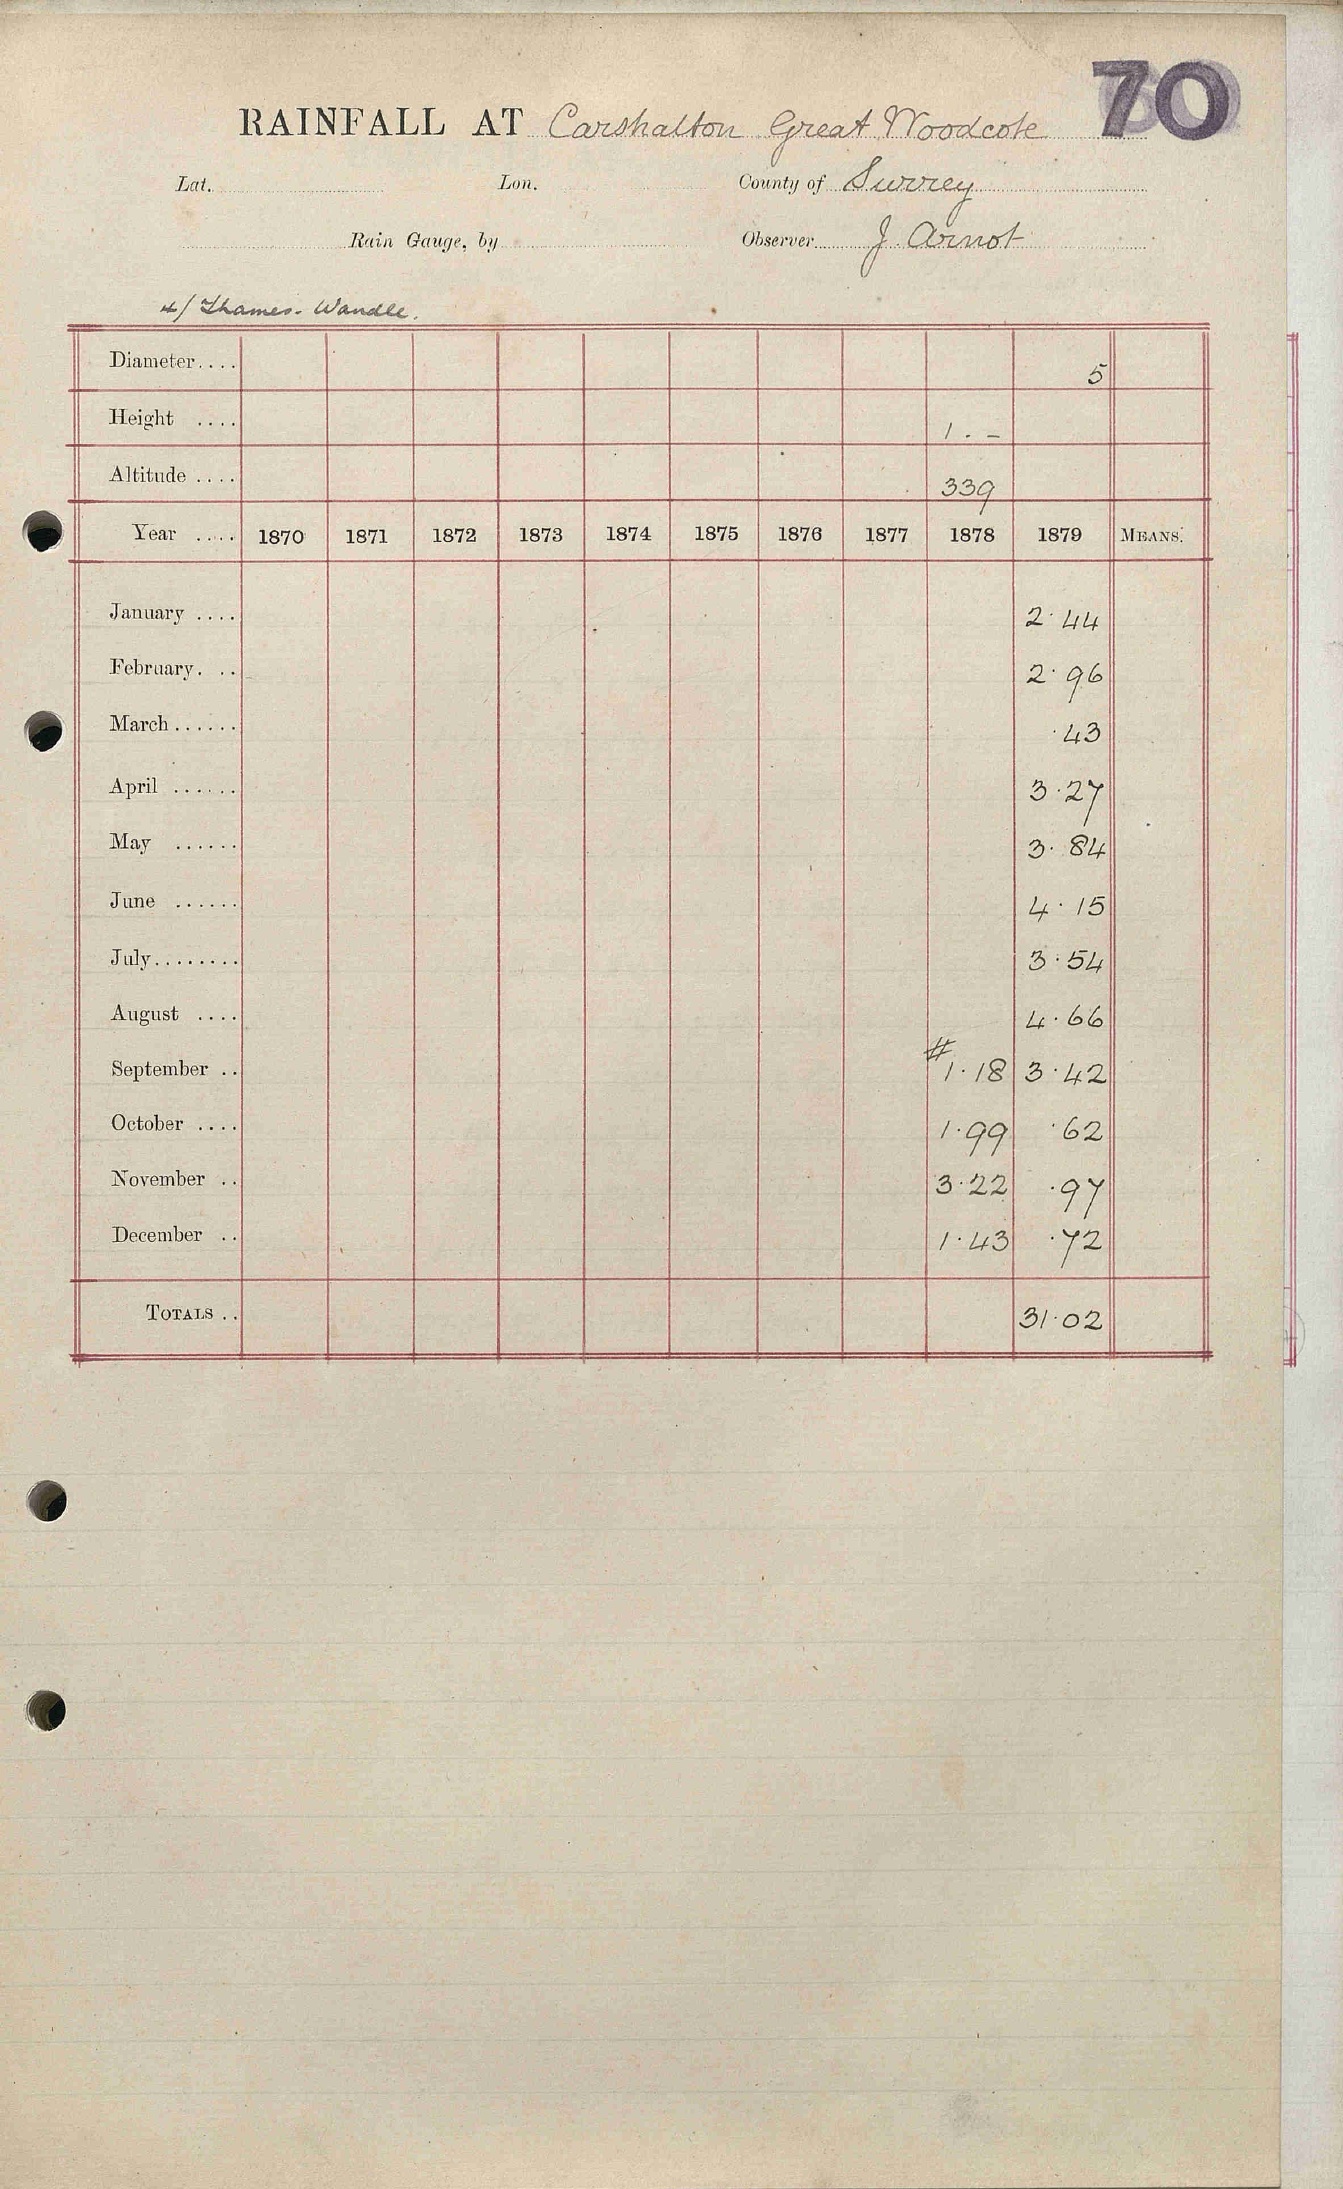 70
RAINFALL AT Carshalton Great Woodcote
Lat. Lon. County of Surrey
Rain Gauge, by Observer J. Arnot
4/ Thames. Wandle.
Diameter.... 5
Height .... 1 . –
Altitude .... 339
Year .... 1870 1871 1872 1873 1874 1875 1876 1877 1878 1879 MEANS.
January .... 2.44
February. .. 2.96
March ...... .43
April ...... 3.27
May ...... 3.84
June ...... 4.15
July........ 3.54
August .... 4.66
September .. # 1.18 3.42
October .... 1.99 .62
November .. 3.22 .97
December .. 1.43 .72
TOTALS .. 31.02